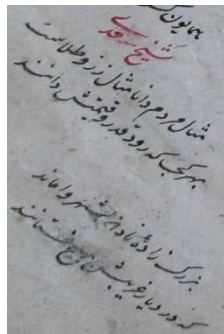 همایون
شیخ سعدی
مثال مردم دانا مثال زر و طلاست
بهر کجا که رود قدر و قیمتش دانند
بزرگ زاده نادان بشهر وا ماند
که در دیار غریبش بهیچ نستانند